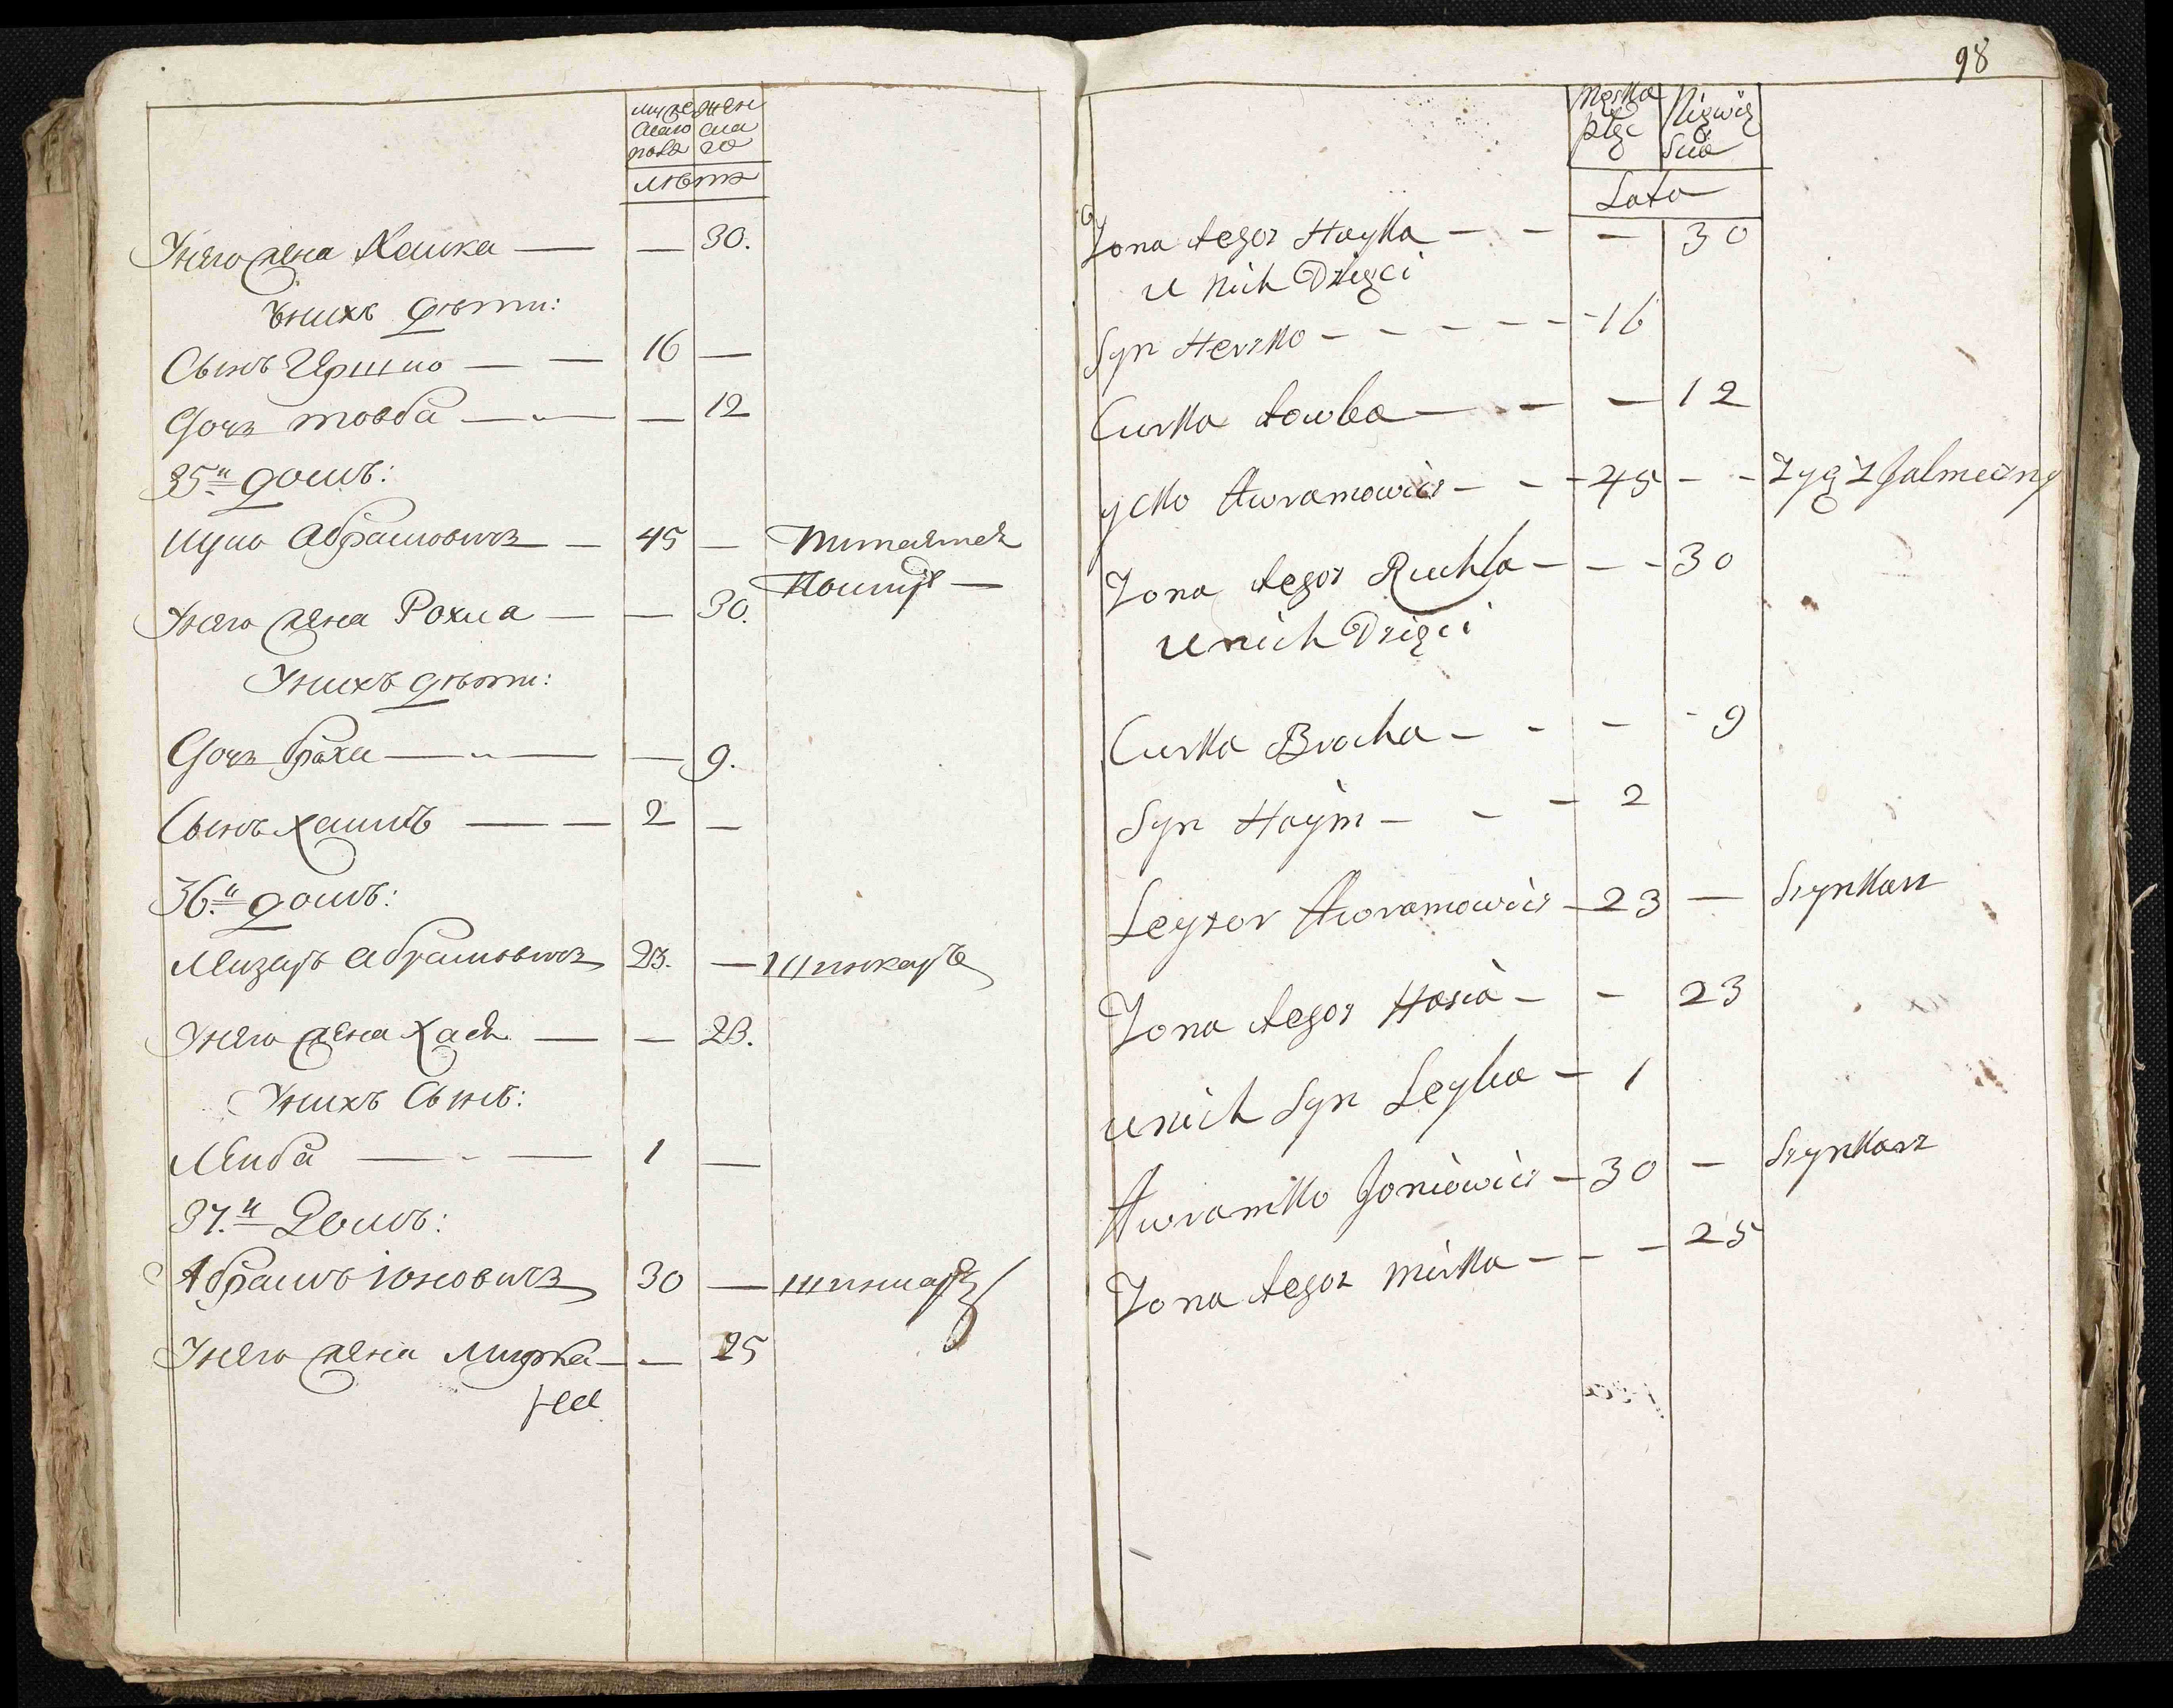 мужеска пола
женска го
лѣта
Унего жена Хаика — — 30.
Унихъ дѣти:
Сынъ Гершко — — 16 —
Дочь товба — — 12
35.й домъ:
Ицко Абрамовичъ — 45 — Питается
Унего жена Рохла — — 30.
Унихъ дѣти:
Дочь браха — — 9.
Сынъ хаимъ — — 2 —
36.й домъ:
Леизаръ абрамовичъ 23. — шинкаръ
Унего жена хася — — 23.
Унихъ Сынъ:
Леиба — — 1 —
37.й Домъ:
Абрамъ Іоновичъ 30 — шинкаръ
Унего жена мирка — — 25
98
Męska płeć
Niewieścia
Lata
Żona tegoż Hayka — — — 30
u nich Dzieci
Syn Herszko — — — — — 16
Curka towba — — — 12
ycko Awramowicz — — 45 — — Żyę z Jałmużny
Żona tegoż Ruchla — — — 30
u nich Dzieci
Curka Bracha — — — — 9
Syn Haym — — — 2
Leyzor Awramowicz — 23 — Szynkarz
Żona tegoż Hasia — — 23
u nich Syn Leyba — 1
Awramko Joniowicz — 30 — Szynkarz
Żona tegoż mirka — — — 25